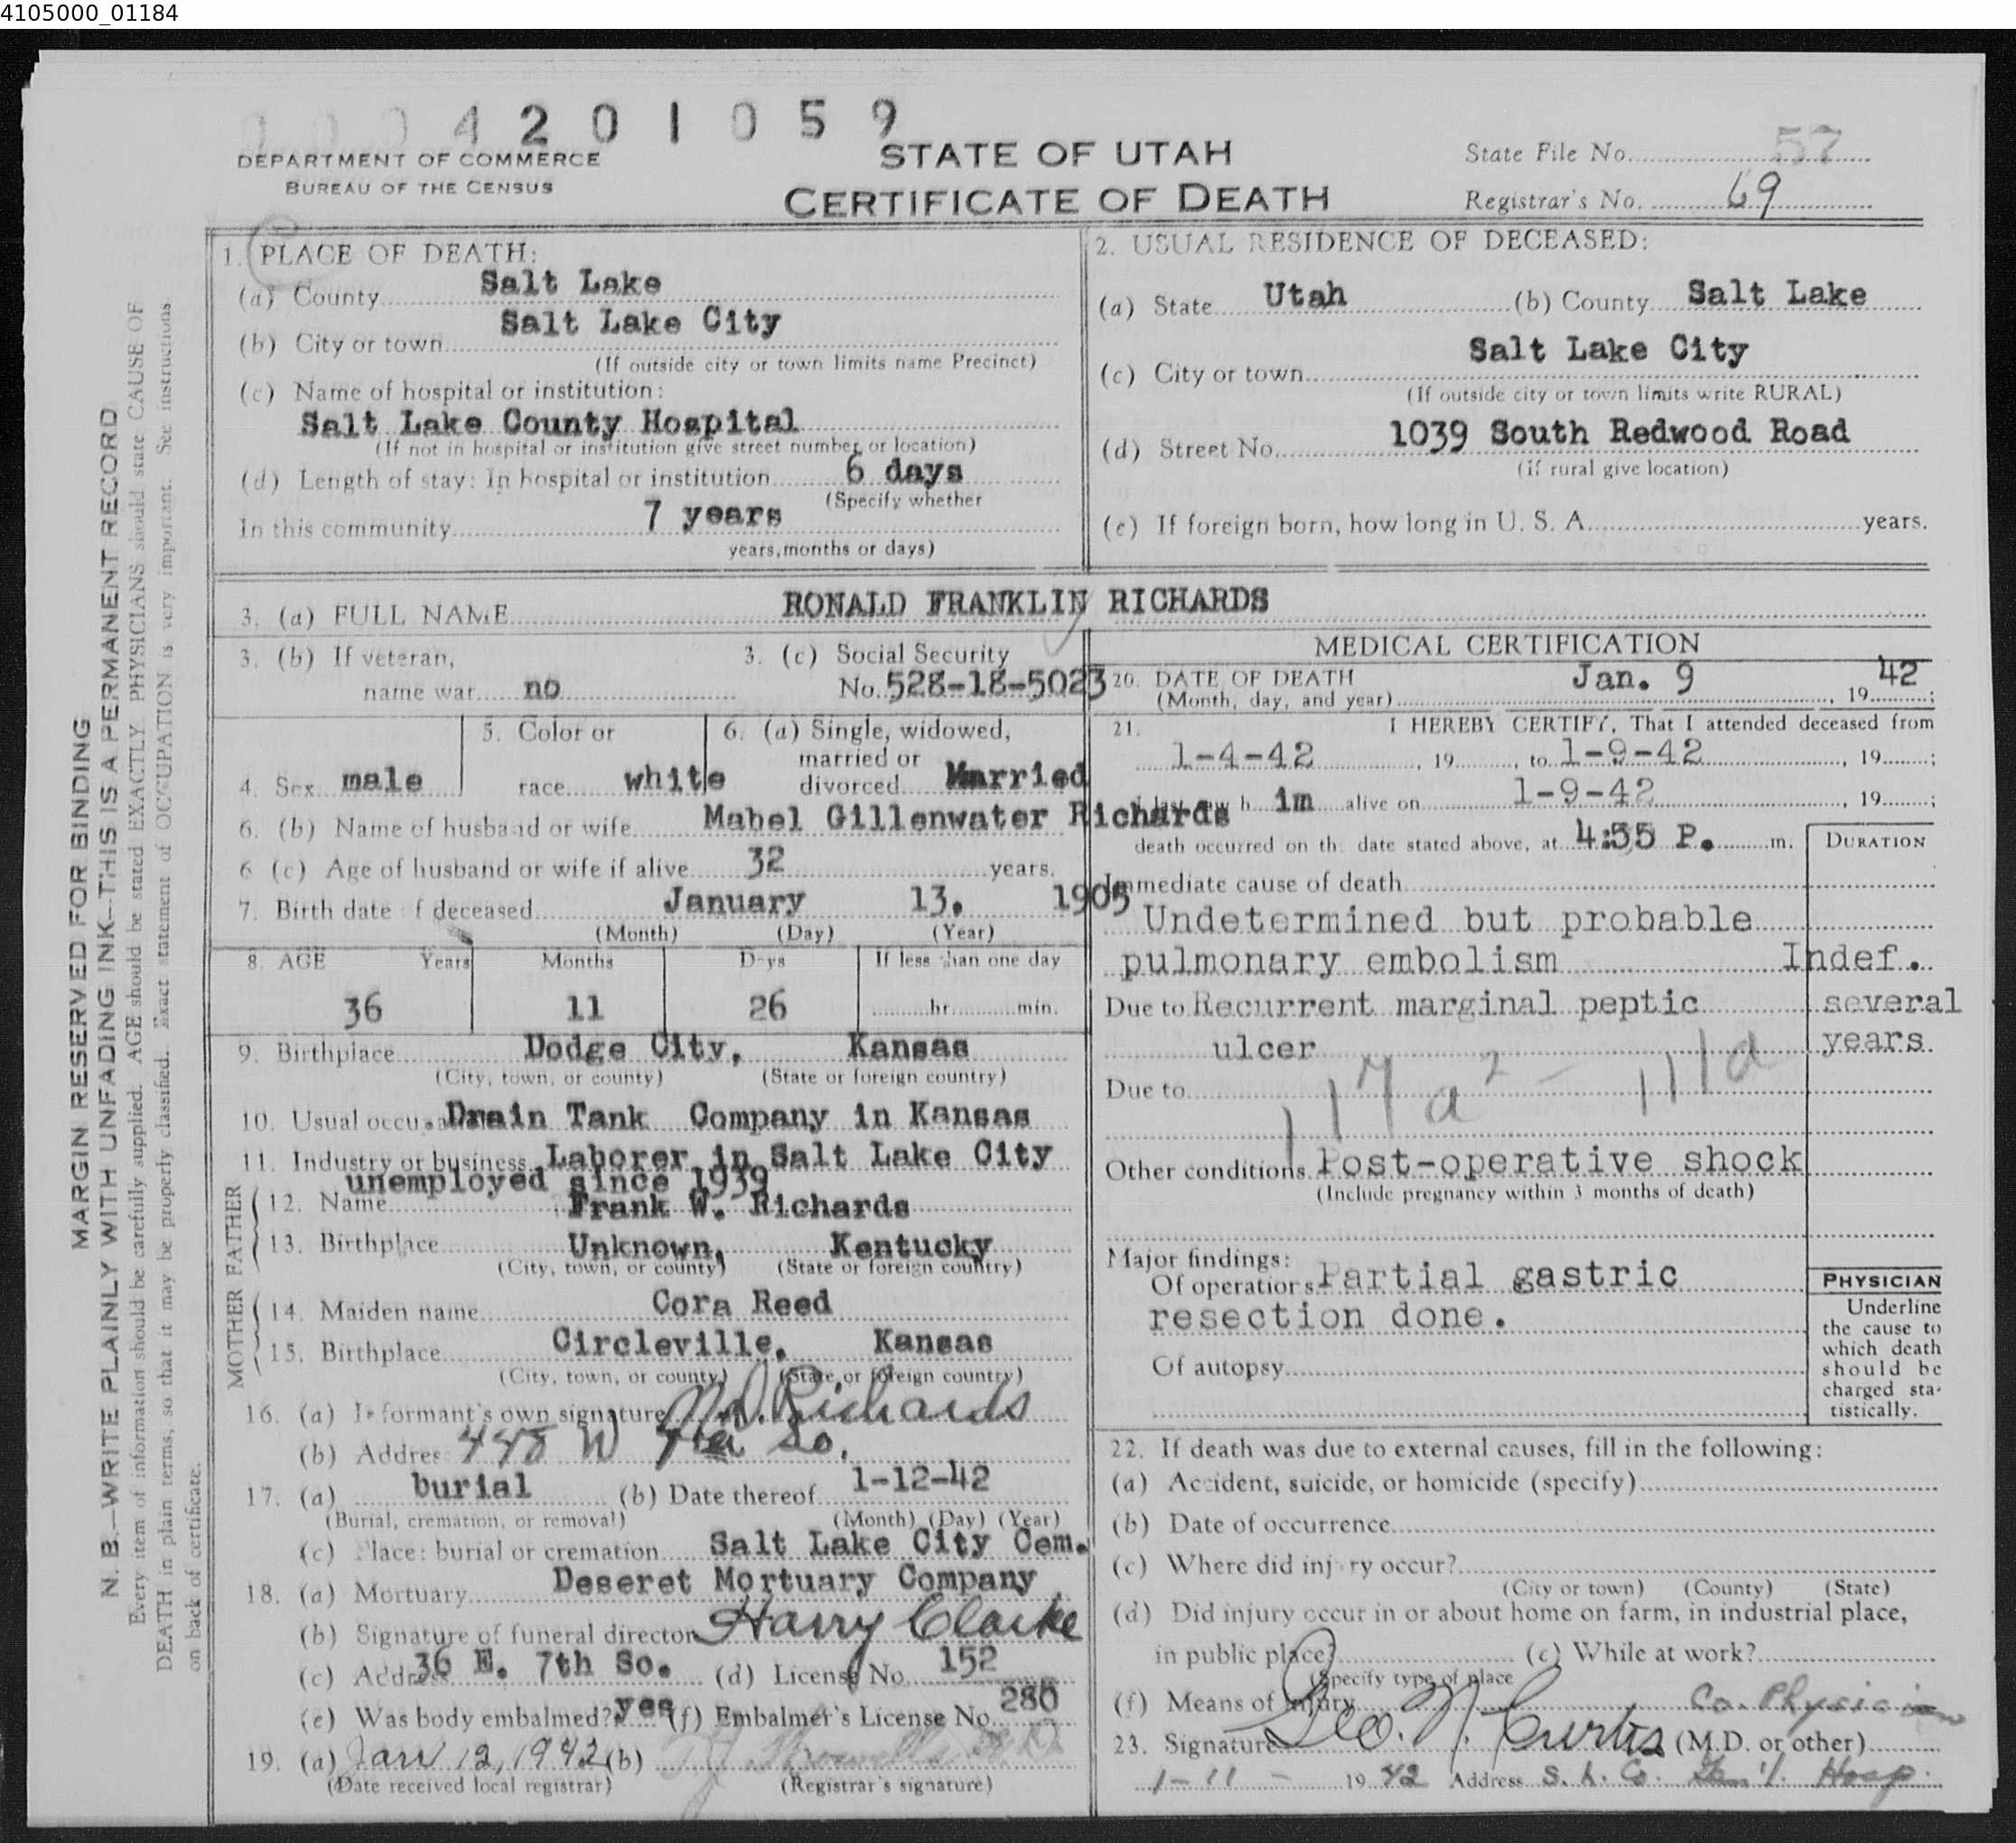 4105000_01184
4 2 0 1 0 5 9
DEPARTMENT OF COMMERCE
BUREAU OF THE CENSUS
STATE OF UTAH
CERTIFICATE OF DEATH
State File No. 57
Registrar's No. 69
MARGIN RESERVED FOR BINDING
N. B.—WRITE PLAINLY WITH UNFADING INK—THIS IS A PERMANENT RECORD
Every item of information should be carefully supplied. AGE should be stated EXACTLY. PHYSICIANS should state CAUSE OF
DEATH in plain terms, so that it may be properly classified. Exact statement of OCCUPATION is very important. See instructions
on back of certificate.
1. PLACE OF DEATH:
(a) County Salt Lake
(b) City or town Salt Lake City
(If outside city or town limits name Precinct)
(c) Name of hospital or institution:
Salt Lake County Hospital
(If not in hospital or institution give street number or location)
(d) Length of stay: In hospital or institution 6 days
(Specify whether
In this community 7 years
years, months or days)
2. USUAL RESIDENCE OF DECEASED:
(a) State Utah (b) County Salt Lake
(c) City or town Salt Lake City
(If outside city or town limits write RURAL)
(d) Street No. 1039 South Redwood Road
(if rural give location)
(e) If foreign born, how long in U. S. A. years.
3. (a) FULL NAME RONALD FRANKLIN RICHARDS
3. (b) If veteran,
name war no
3. (c) Social Security
No. 528-18-5023
4. Sex male
5. Color or
race white
6. (a) Single, widowed,
married or
divorced Married
6. (b) Name of husband or wife Mabel Gillenwater Richards
6 (c) Age of husband or wife if alive 32 years.
7. Birth date of deceased January 13, 1905
(Month) (Day) (Year)
8. AGE Years Months Days If less than one day
36 11 26 hr. min.
9. Birthplace Dodge City, Kansas
(City, town, or county) (State or foreign country)
10. Usual occu Drain Tank Company in Kansas
11. Industry or business Laborer in Salt Lake City
unemployed since 1939
FATHER
12. Name Frank W. Richards
13. Birthplace Unknown, Kentucky
(City, town, or county) (State or foreign country)
MOTHER
14. Maiden name Cora Reed
15. Birthplace Circleville, Kansas
(City, town, or county) (State or foreign country)
16. (a) Informant's own signature Richards
(b) Address 448 W So.
17. (a) burial (b) Date thereof 1-12-42
(Burial, cremation, or removal) (Month) (Day) (Year)
(c) Place: burial or cremation Salt Lake City Cem.
18. (a) Mortuary Deseret Mortuary Company
(b) Signature of funeral director Harry Clarke
(c) Address 36 E. 7th So. (d) License No. 152
(e) Was body embalmed? yes (f) Embalmer's License No. 280
19. (a) Jan 12, 1942 (b)
(Date received local registrar) (Registrar's signature)
MEDICAL CERTIFICATION
20. DATE OF DEATH Jan. 9 42
(Month, day, and year) , 19 ;
21. I HEREBY CERTIFY, That I attended deceased from
1-4-42 , 19 , to 1-9-42 , 19 ;
I last saw h im alive on 1-9-42 , 19 ;
death occurred on the date stated above, at 4:55 P. m.
DURATION
Immediate cause of death
Undetermined but probable
pulmonary embolism Indef.
Due to Recurrent marginal peptic several
ulcer years
Due to
117 a 2 - 111a
Other conditions Post-operative shock
(Include pregnancy within 3 months of death)
Major findings:
Of operations Partial gastric
resection done.
Of autopsy
PHYSICIAN
Underline
the cause to
which death
should be
charged sta-
tistically.
22. If death was due to external causes, fill in the following:
(a) Accident, suicide, or homicide (specify)
(b) Date of occurrence
(c) Where did injury occur?
(City or town) (County) (State)
(d) Did injury occur in or about home on farm, in industrial place,
in public place? (e) While at work?
(Specify type of place
(f) Means of injury Co. Physician
23. Signature Geo. N. Curtis (M.D. or other)
1-11- 19 42 Address S. L. Co. Gen'l. Hosp.